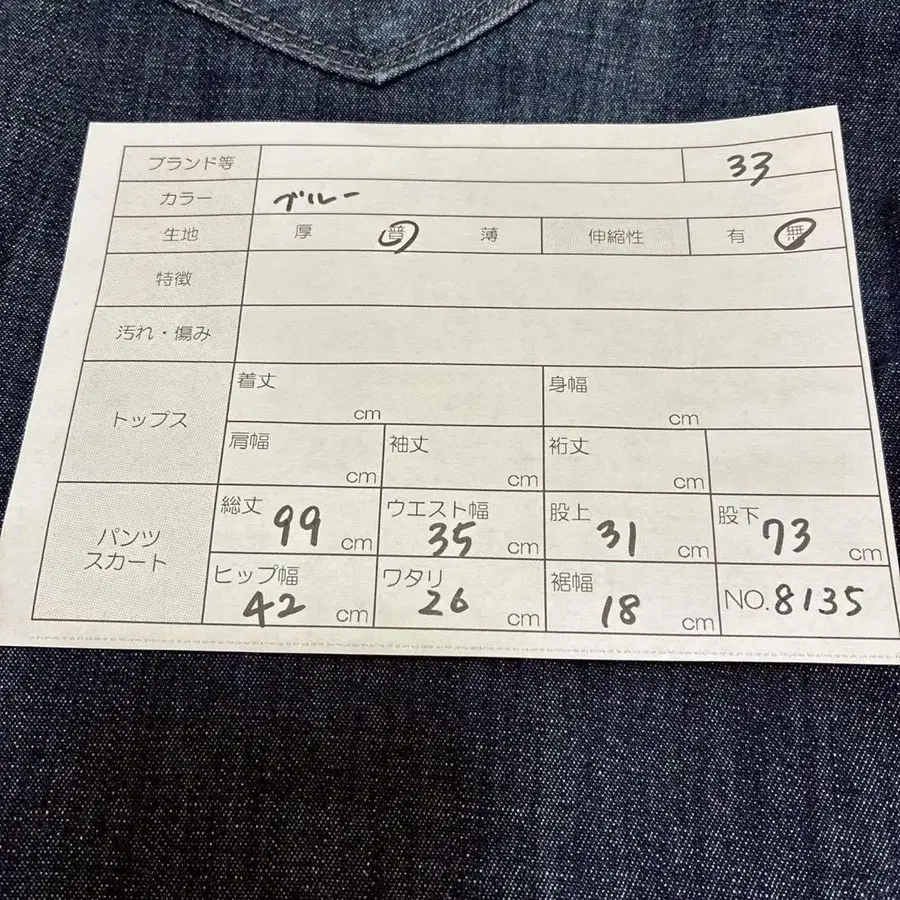 ブランド等 33
カラー ブルー
生地 厚 普 薄 伸縮性 有 無
特徴
汚れ・傷み
トップス
着丈 cm 身幅 cm
肩幅 cm 袖丈 cm 裄丈 cm
パンツ
スカート
総丈 99 cm ウエスト幅 35 cm 股上 31 cm 股下 73 cm
ヒップ幅 42 cm ワタリ 26 cm 裾幅 18 cm NO.8135